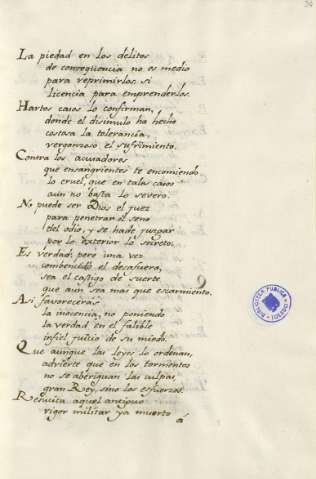 La piedad en los delitos
de consequencia no es medio
para reprimirlos, si
licencia para emprenderlos.
Hartos casos lo confirman,
donde el disimulo ha hecho
costosa la tolerancia,
vergonzoso el sufrimiento.
Contra los acusadores
que ensangrientes te encomiendo
lo cruel, que en tales casos
aun no basta lo severo.
No puede ser Dios el juez
para penetrar el seno
del odio, y se hade juzgar
por lo exterior lo secreto.
Es verdad; pero una vez
combencido el desafuero,
sea el castigo de suerte
que aun sea mas que escarmiento.
Asi favoreceras
la inocencia, no poniendo
la verdad en el falible
infiel juicio de su miedo.
Que aunque las leyes lo ordenan,
advierte que en los tormentos
no se aberiguan las culpas,
gran Rey, sino los esfuerzos.
Resucita aquel antiguo
vigor militar ya muerto
á
BIBLIOTECA PUBLICA
TOLEDO